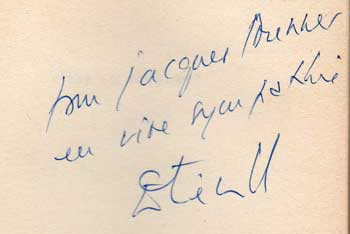 pour Jacques Brenner
en vive sympathie